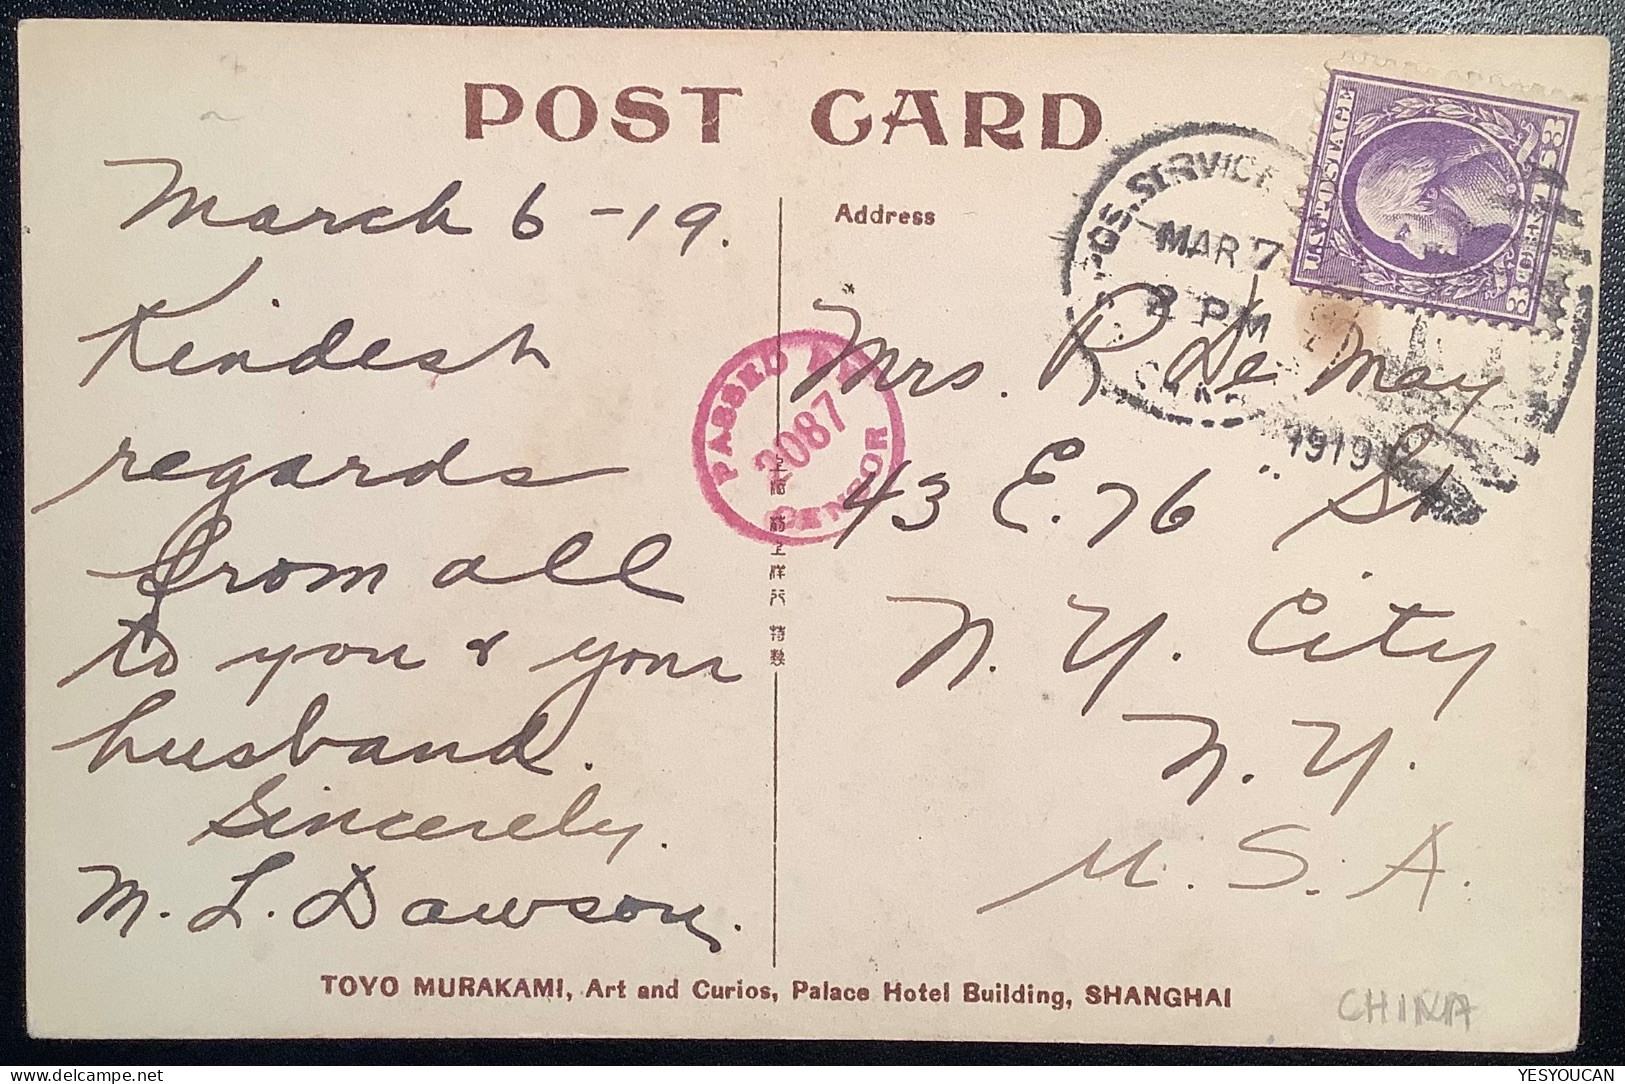 POST CARD
March 6 - 19.
Kindest
regards
from all
to you & your
husband.
Sincerely.
M. L. Dawson.
Address
Mrs. R De May
43 E. 76 " St
N. Y. City
N. Y.
U. S. A.
U.S. POSTAGE
3 CENTS 3
POS. SERVICE
MAR 7
2 PM
1919
PASSED BY
2087
CENSOR
上海村上洋行特製
TOYO MURAKAMI, Art and Curios, Palace Hotel Building, SHANGHAI
CHINA
YESYOUCAN